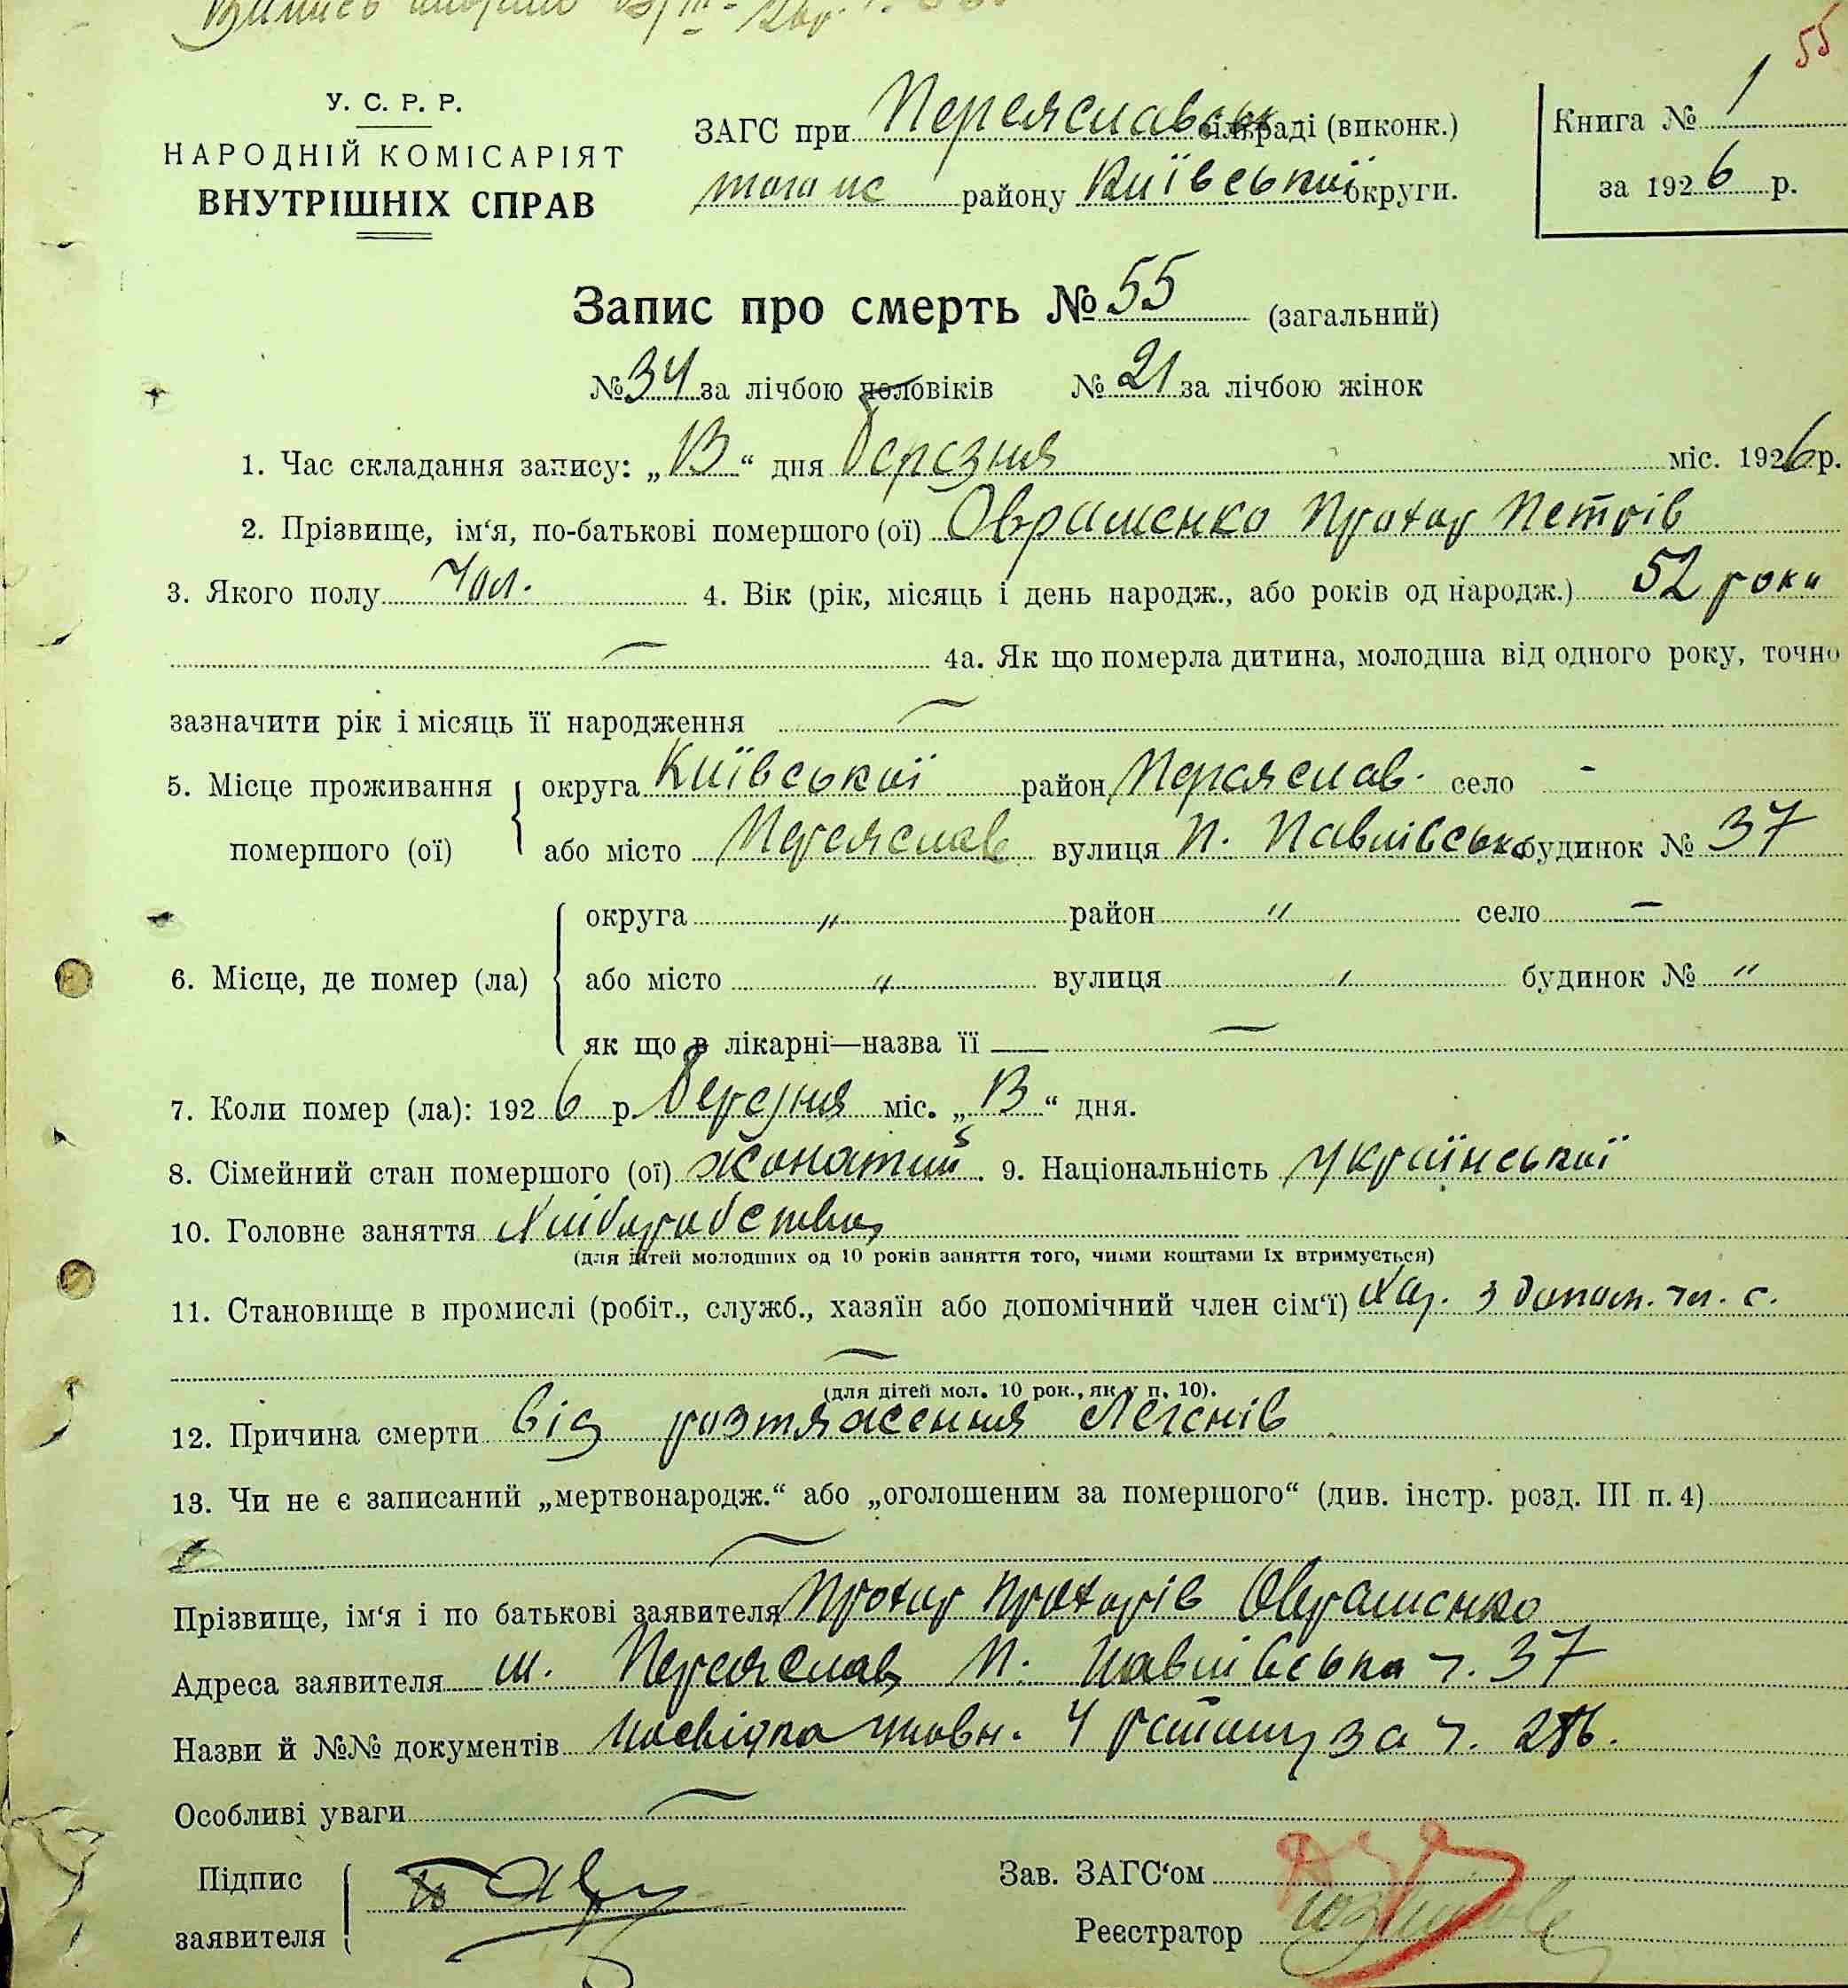 55
У. С. Р. Р.
НАРОДНІЙ КОМІСАРІЯТ
ВНУТРІШНІХ СПРАВ
ЗАГС при Переяславськ сільраді (виконк.)
того ж району Київської округи.
Книга № 1
за 1926 р.
Запис про смерть № 55 (загальний)
№ 34 за лічбою чоловіків № 21 за лічбою жінок
1. Час складання запису: „13“ дня березня міс. 1926 р.
2. Прізвище, ім‘я, по-батькові помершого (ої) Овраменко Прохор Петрів
3. Якого полу Чол. 4. Вік (рік, місяць і день народж., або років од народж.) 52 роки
4а. Як що померла дитина, молодша від одного року, точно
зазначити рік і місяць її народження
5. Місце проживання помершого (ої)
округа Київської район Переяслав. село -
або місто Переяслав вулиця П. Павлівська будинок № 37
6. Місце, де помер (ла)
округа „ район „ село —
або місто „ вулиця „ будинок № „
як що в лікарні—назва її
7. Коли помер (ла): 1926 р. березня міс. „13“ дня.
8. Сімейний стан помершого (ої) жонатий. 9. Національність Української
10. Головне заняття Хліборобство
(для дітей молодших од 10 років заняття того, чиїми коштами їх втримується)
11. Становище в промислі (робіт., служб., хазяїн або допомічний член сім‘ї) Хаз. з допом. чл. с.
(для дітей мол. 10 рок., як у п. 10).
12. Причина смерти від розтяження Легенів
13. Чи не є записаний „мертвонародж.“ або „оголошеним за помершого“ (див. інстр. розд. III п. 4)
Прізвище, ім‘я і по батькові заявителя Прохор Прохорів Овраменко
Адреса заявителя м. Переяслав П. Павлівська ч. 37
Назви й №№ документів Посвідка уповн. 4 району за ч.
Особливі уваги
Підпис заявителя
Зав. ЗАГС‘ом
Реєстратор